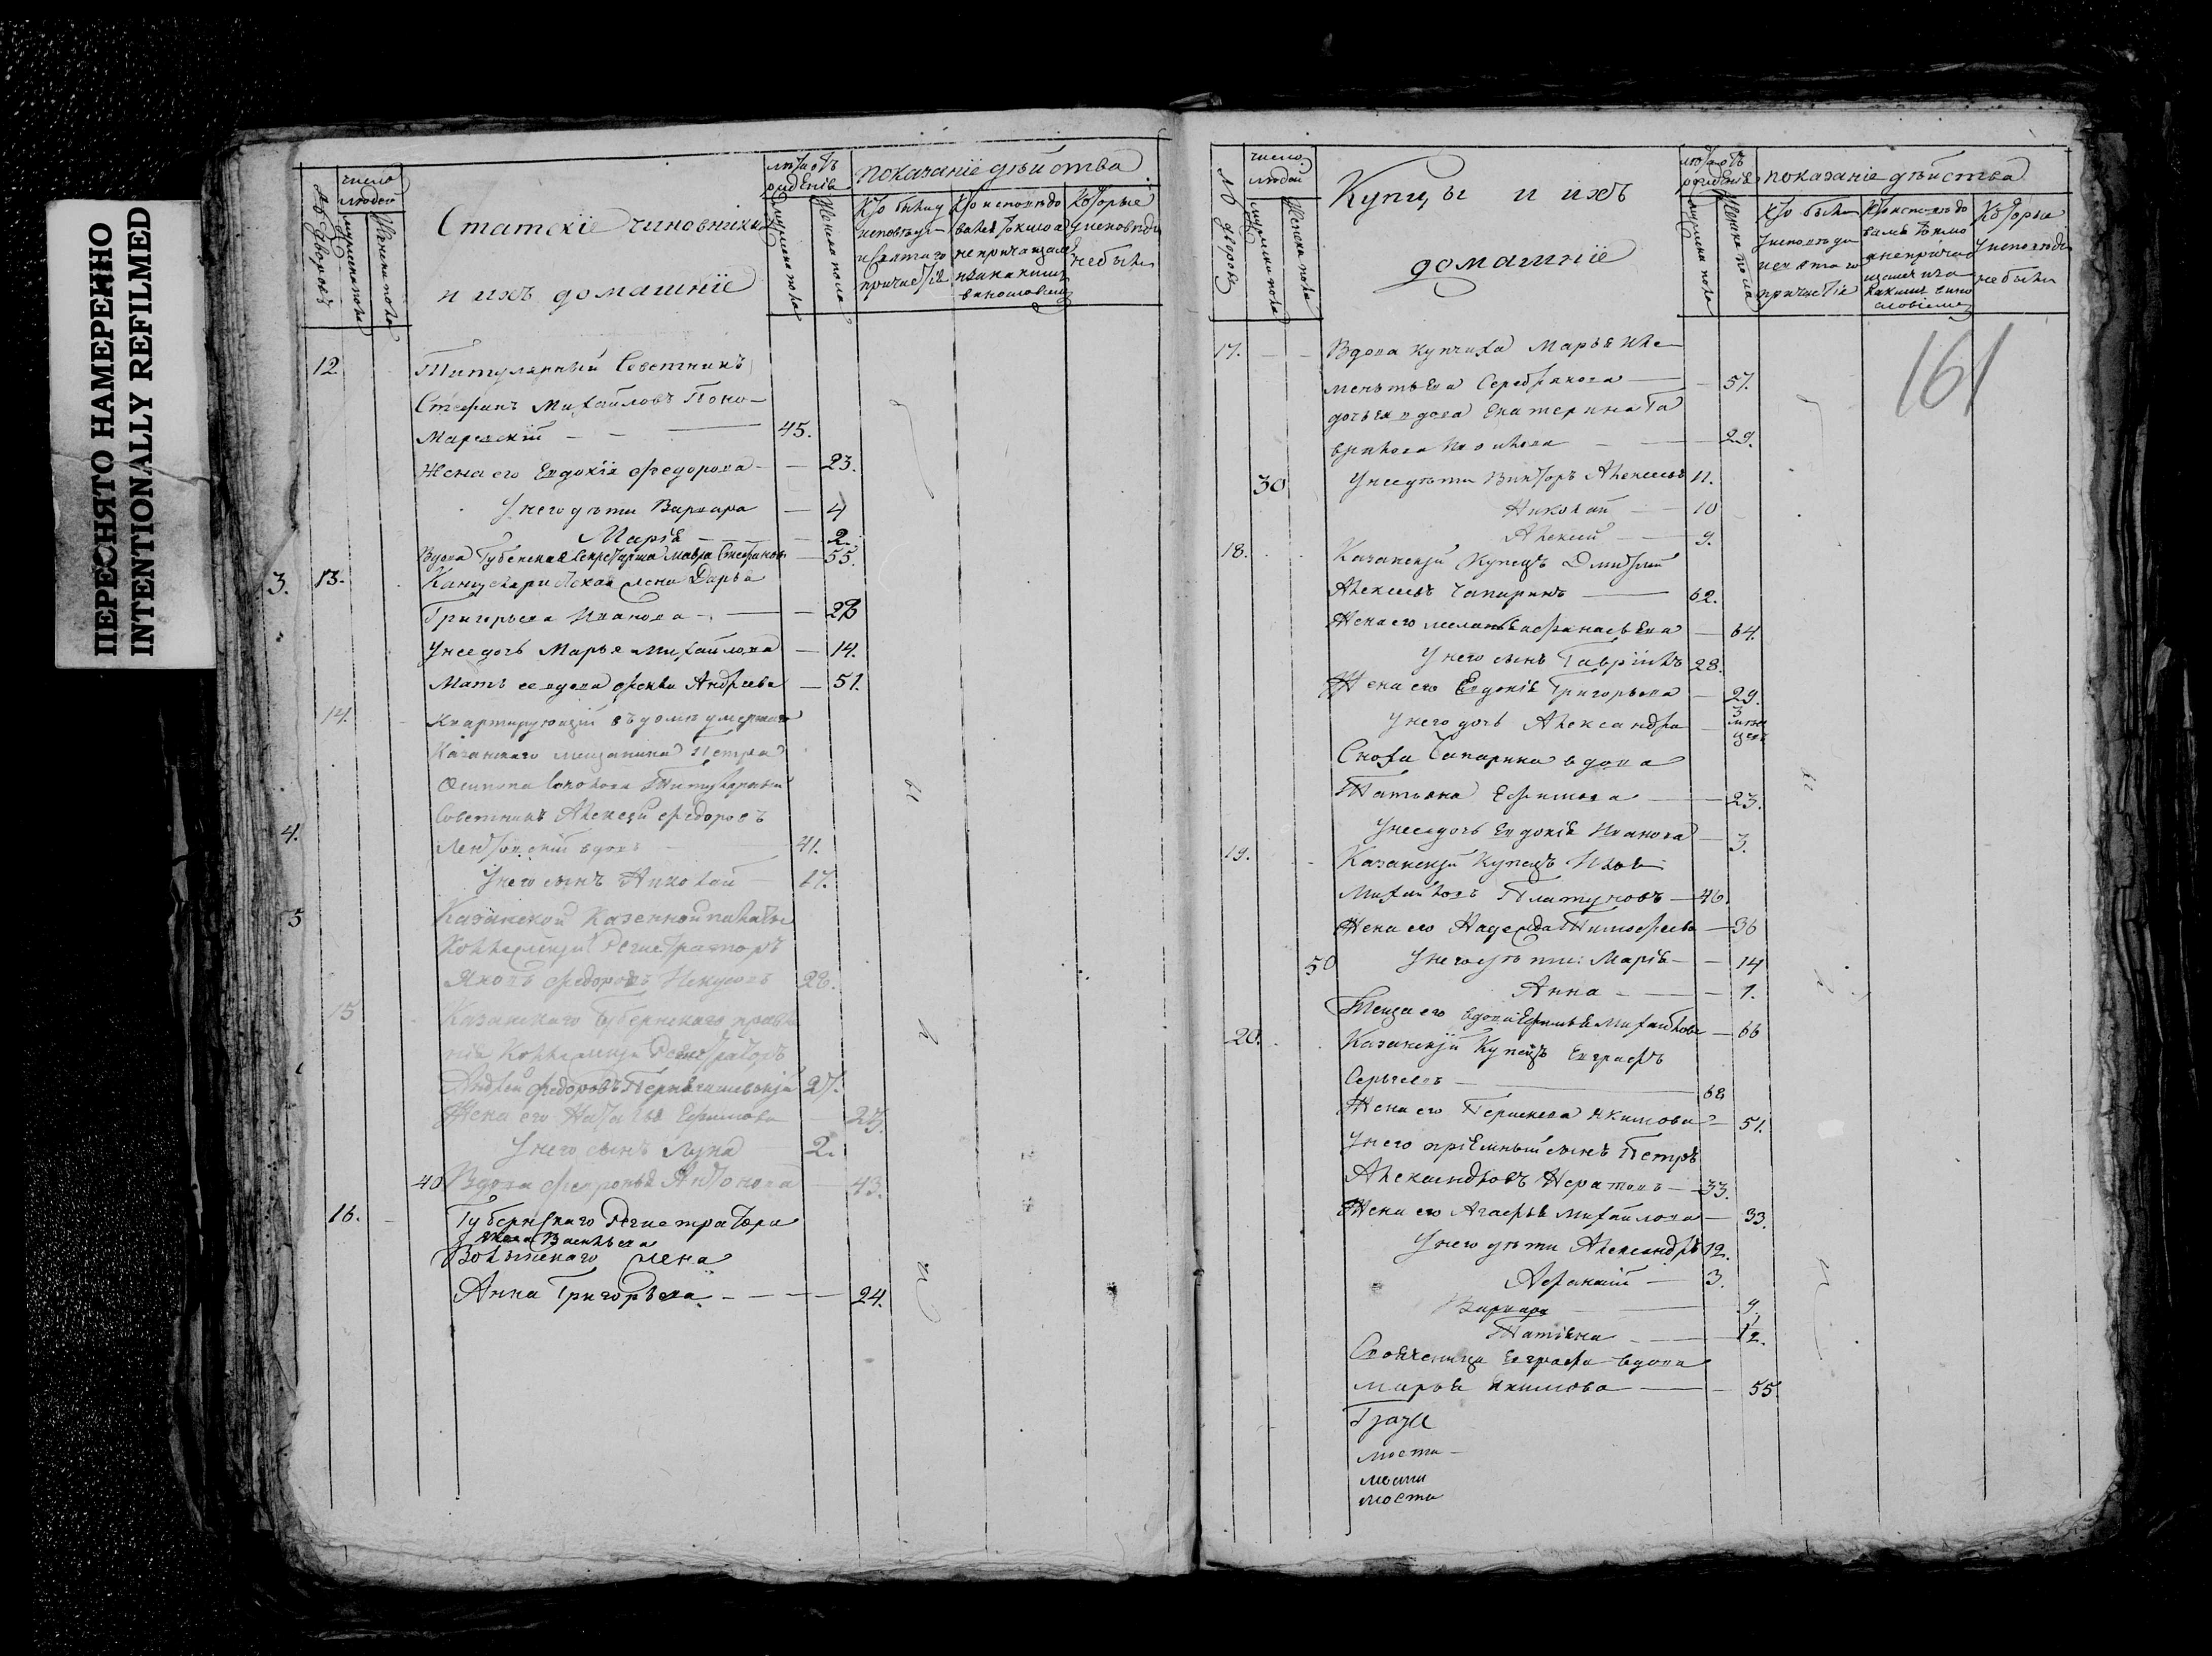 ПЕРЕСНЯТО НАМЕРЕННО
INTENTIONALLY REFILMED
№ дворовъ
число людей
мужеска пола
Женска пола
Статскіе чиновники
и ихъ домашніе
лѣта отъ рожденія
мужеска пола
Женска пола
показаніе дѣйства
Кто были у исповѣди и святаго причастія
Кто исповѣдовались токмо а не причащались и за какимъ винословіемъ
Которые у исповѣди не были
12 Титулярный Советникъ
Стефанъ Михайловъ Поно-
Маревскій 45.
Жена его Евдокія Федорова 23.
У него дѣти Варвара 4
Марія 2.
Вдова Губенская Секретарша Мавра Стефанова 55.
3. 13. Канцеляриская жена Дарья
Григорьева Иванова 28
У нее дочь Марья Михайлова 14.
Мать ее вдова Фекла Андреева 51.
14. Квартирующій въ домѣ умершаго
Казанскаго мещанина Петра
Осипова Титулярный
Советникъ Алексѣй Федоровъ
4. вдовъ 41.
У него сынъ Николай 17.
5 Казанской Казенной палаты
Коллежскій Регистраторъ
Яковъ Федоровъ 28.
15 Казанскаго Губернскаго правле
нія Коллежскій Регистраторъ
Андрей Федоровъ 27.
Жена его Наталья Ефимова 23.
У него сынъ Лука 2.
40 Вдова Февронья Антонова 43.
16. Губернскаго Регистратора
Васильева
жена
Анна Григорьева 24.
№ дворовъ
число людей
мужеска пола
Женска пола
Купцы и ихъ
домашніе
лѣта отъ рожденія
мужеска пола
Женска пола
показаніе дѣйства
Кто были у исповѣди и святаго причастія
Кто исповѣдовались токмо а не причащались и за какимъ винословіемъ
Которые у исповѣди не были
161
17. Вдова купчиха Марья Кле-
ментьева Серебрякова 57.
дочь ея вдова Екатерина Га
врилова 29.
30 У нее дѣти Викторъ Алексеевъ 11.
Николай 10
Алексей 9.
18. Казанскій Купецъ Дмитрій
Алексеевъ Чапаринъ 62.
Жена его Меланья Афанасьева 64.
У него сынъ Гавріилъ 28.
Жена его Евдокія Григорьева 29.
У него дочь Александра 3 месяцевъ
Сноха Чапарина вдова
Татьяна Ефимова 23.
У нее дочь Евдокія Иванова 3.
19. Казанскій Купецъ Илья
Михайловъ Платуновъ 46.
Жена его Надежда Тимофеева 36
50 У него дѣти: Марія 14
Анна 1.
Теща его вдова Михайлова 66
20. Казанскій Купецъ Евграфъ
Сергеевъ 68
Жена его Якимова 51.
У него пріемный сынъ Петръ
Александровъ 33.
Жена его Агафья Михайлова 33.
У него дѣти Александръ 12.
Афанасій 3.
Варвара 9.
Татіана 1/2.
Своячница Евграфа вдова
Марья Якимова 55.
мости